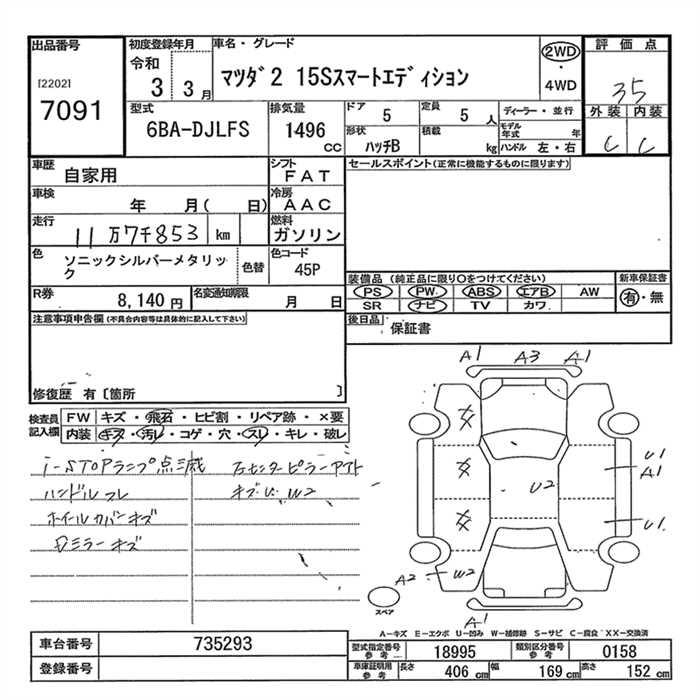 出品番号
[2202]
7091
初度登録年月
令和
3 3月
車名・グレード
マツダ2 15Sスマートエディション
2WD
・
4WD
評価点
35
外装 内装
C C
型式
6BA-DJLFS
排気量
1496
CC
ドア
5
定員
5人
形状
ハッチB
積載
kg
ディーラー・並行
モデル年式 年
ハンドル 左・右
車歴
自家用
シフト
FAT
車検
年 月( 日)
冷房
AAC
走行
11万7千853 km
燃料
ガソリン
色
ソニックシルバーメタリック
色替
色コード
45P
R券
8,140円
名変通知期限
月 日
セールスポイント(正常に機能するものに限ります)
装備品 (純正品に限り○をつけてください)
PS PW ABS エアB AW
SR ナビ TV カワ
新車保証書
有・無
後日品
保証書
注意事項申告欄 (不具合内容等は具体的に記入して下さい)
修復歴 有〔箇所 〕
検査員記入欄
FW キズ・飛石・ヒビ割・リペア跡・×要
内装 キズ・汚レ・コゲ・穴・スレ・キレ・破レ
i-STOPランプ点滅
ハンドルスレ
ホイールカバーキズ
Dミラーキズ
右センターピラーアウト
キズU W2
A1 A3 A1
XX
XX
XX
U2
U1
A1
U1
A2 W2
A1
スペア
A-キズ E-エクボ U-凹み W-補修跡 S-サビ C-腐食 XX-交換済
車台番号
735293
登録番号
型式指定番号
参考
18995
類別区分番号
参考
0158
車庫証明用
参考
長さ
406 cm
幅
169 cm
高さ
152 cm